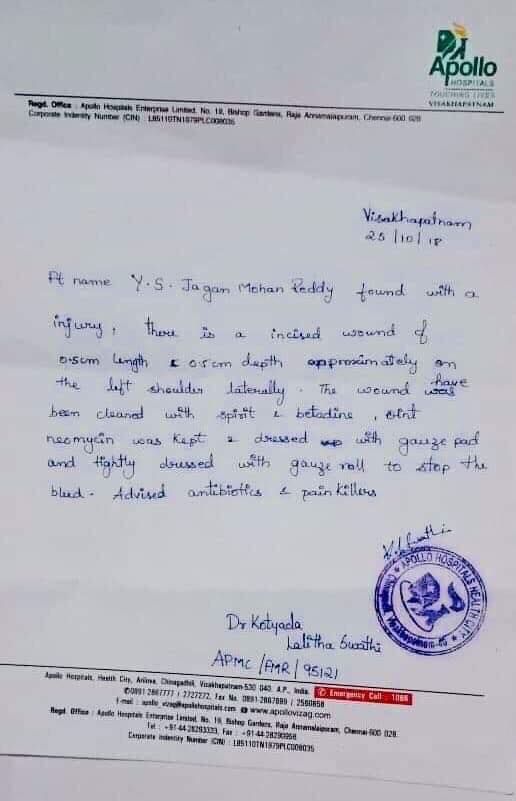 Apollo
HOSPITALS
TOUCHING LIVES
VISAKHAPATNAM
Regd. Office : Apollo Hospitals Enterprise Limited, No. 19, Bishop Gardens, Raja Annamalaipuram, Chennai-600 028
Corporate Indentity Number (CIN) : L85110TN1979PLC008035
Visakhapatnam
25/10/18
Pt name Y.S. Jagan Mohan Reddy found with a
injury, there is a incised wound of
0.5cm length & 0.5cm depth approximately on
the left shoulder laterally. The wound have
been cleaned with spirit & betadine, oint
neomycin was kept & dressed with gauze pad
and tightly dressed with gauze roll to stop the
bleed. Advised antibiotics & painkillers
APOLLO HOSPITALS HEALTH CITY
Chinagadili, Visakhapatnam-40
Dr Kotyada
Lalitha Swathi
APMC/FMR/95121
Apollo Hospitals, Health City, Arilova, Chinagadhili, Visakhapatnam-530 040. A.P., India. Emergency Call : 1066
0891 2867777 / 2727272, Fax No. 0891-2867889 / 2560858
E-mail : apollo_vizag@apollohospitals.com www.apollovizag.com
Regd. Office : Apollo Hospitals Enterprise Limited, No. 19, Bishop Gardens, Raja Annamalaipuram, Chennai-600 028.
Tel : +91-44-28293333, Fax : +91-44-28290956
Corporate Indentity Number (CIN) : L85110TN1979PLC008035